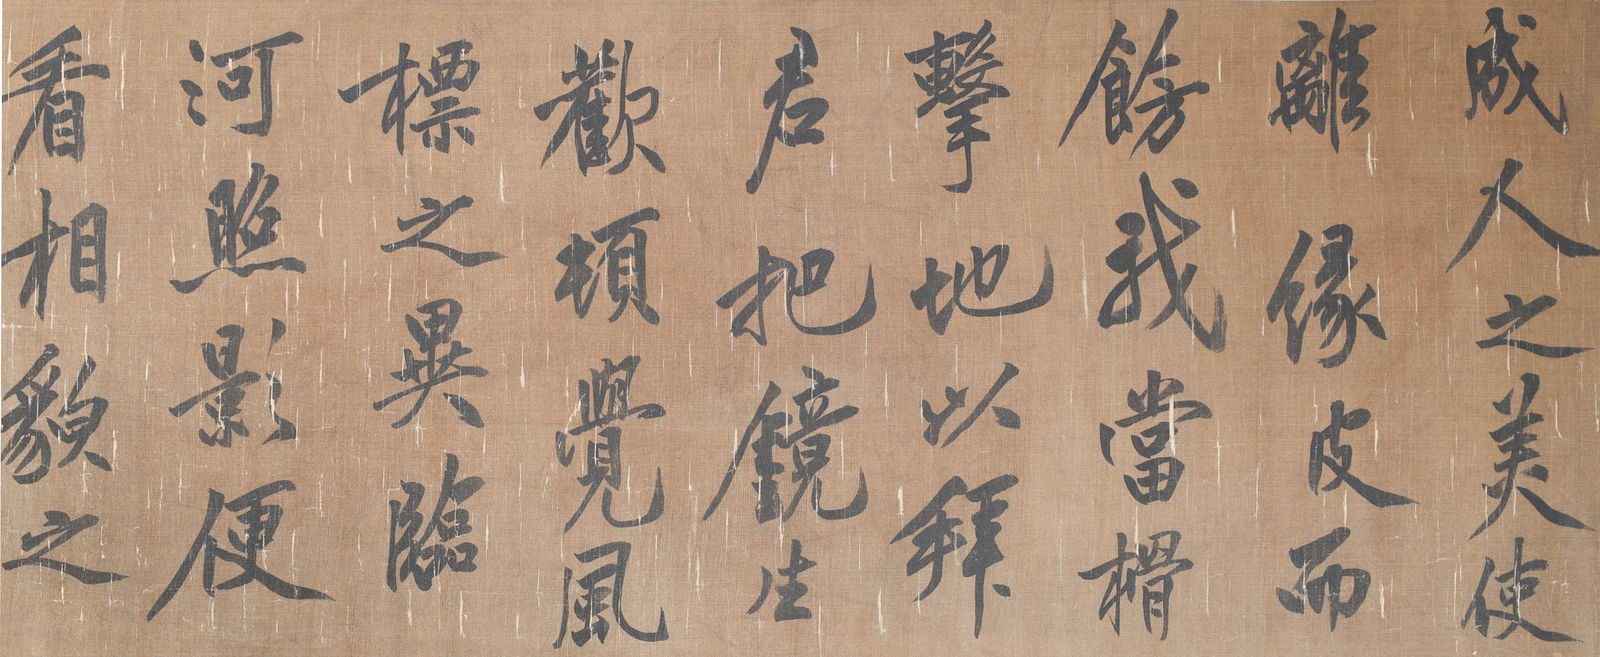 成人之美使
離緣皮而
餝我當榾
擊地以拜
君把鏡生
歡頓覺風
標之異臨
河照影便
看相貌之